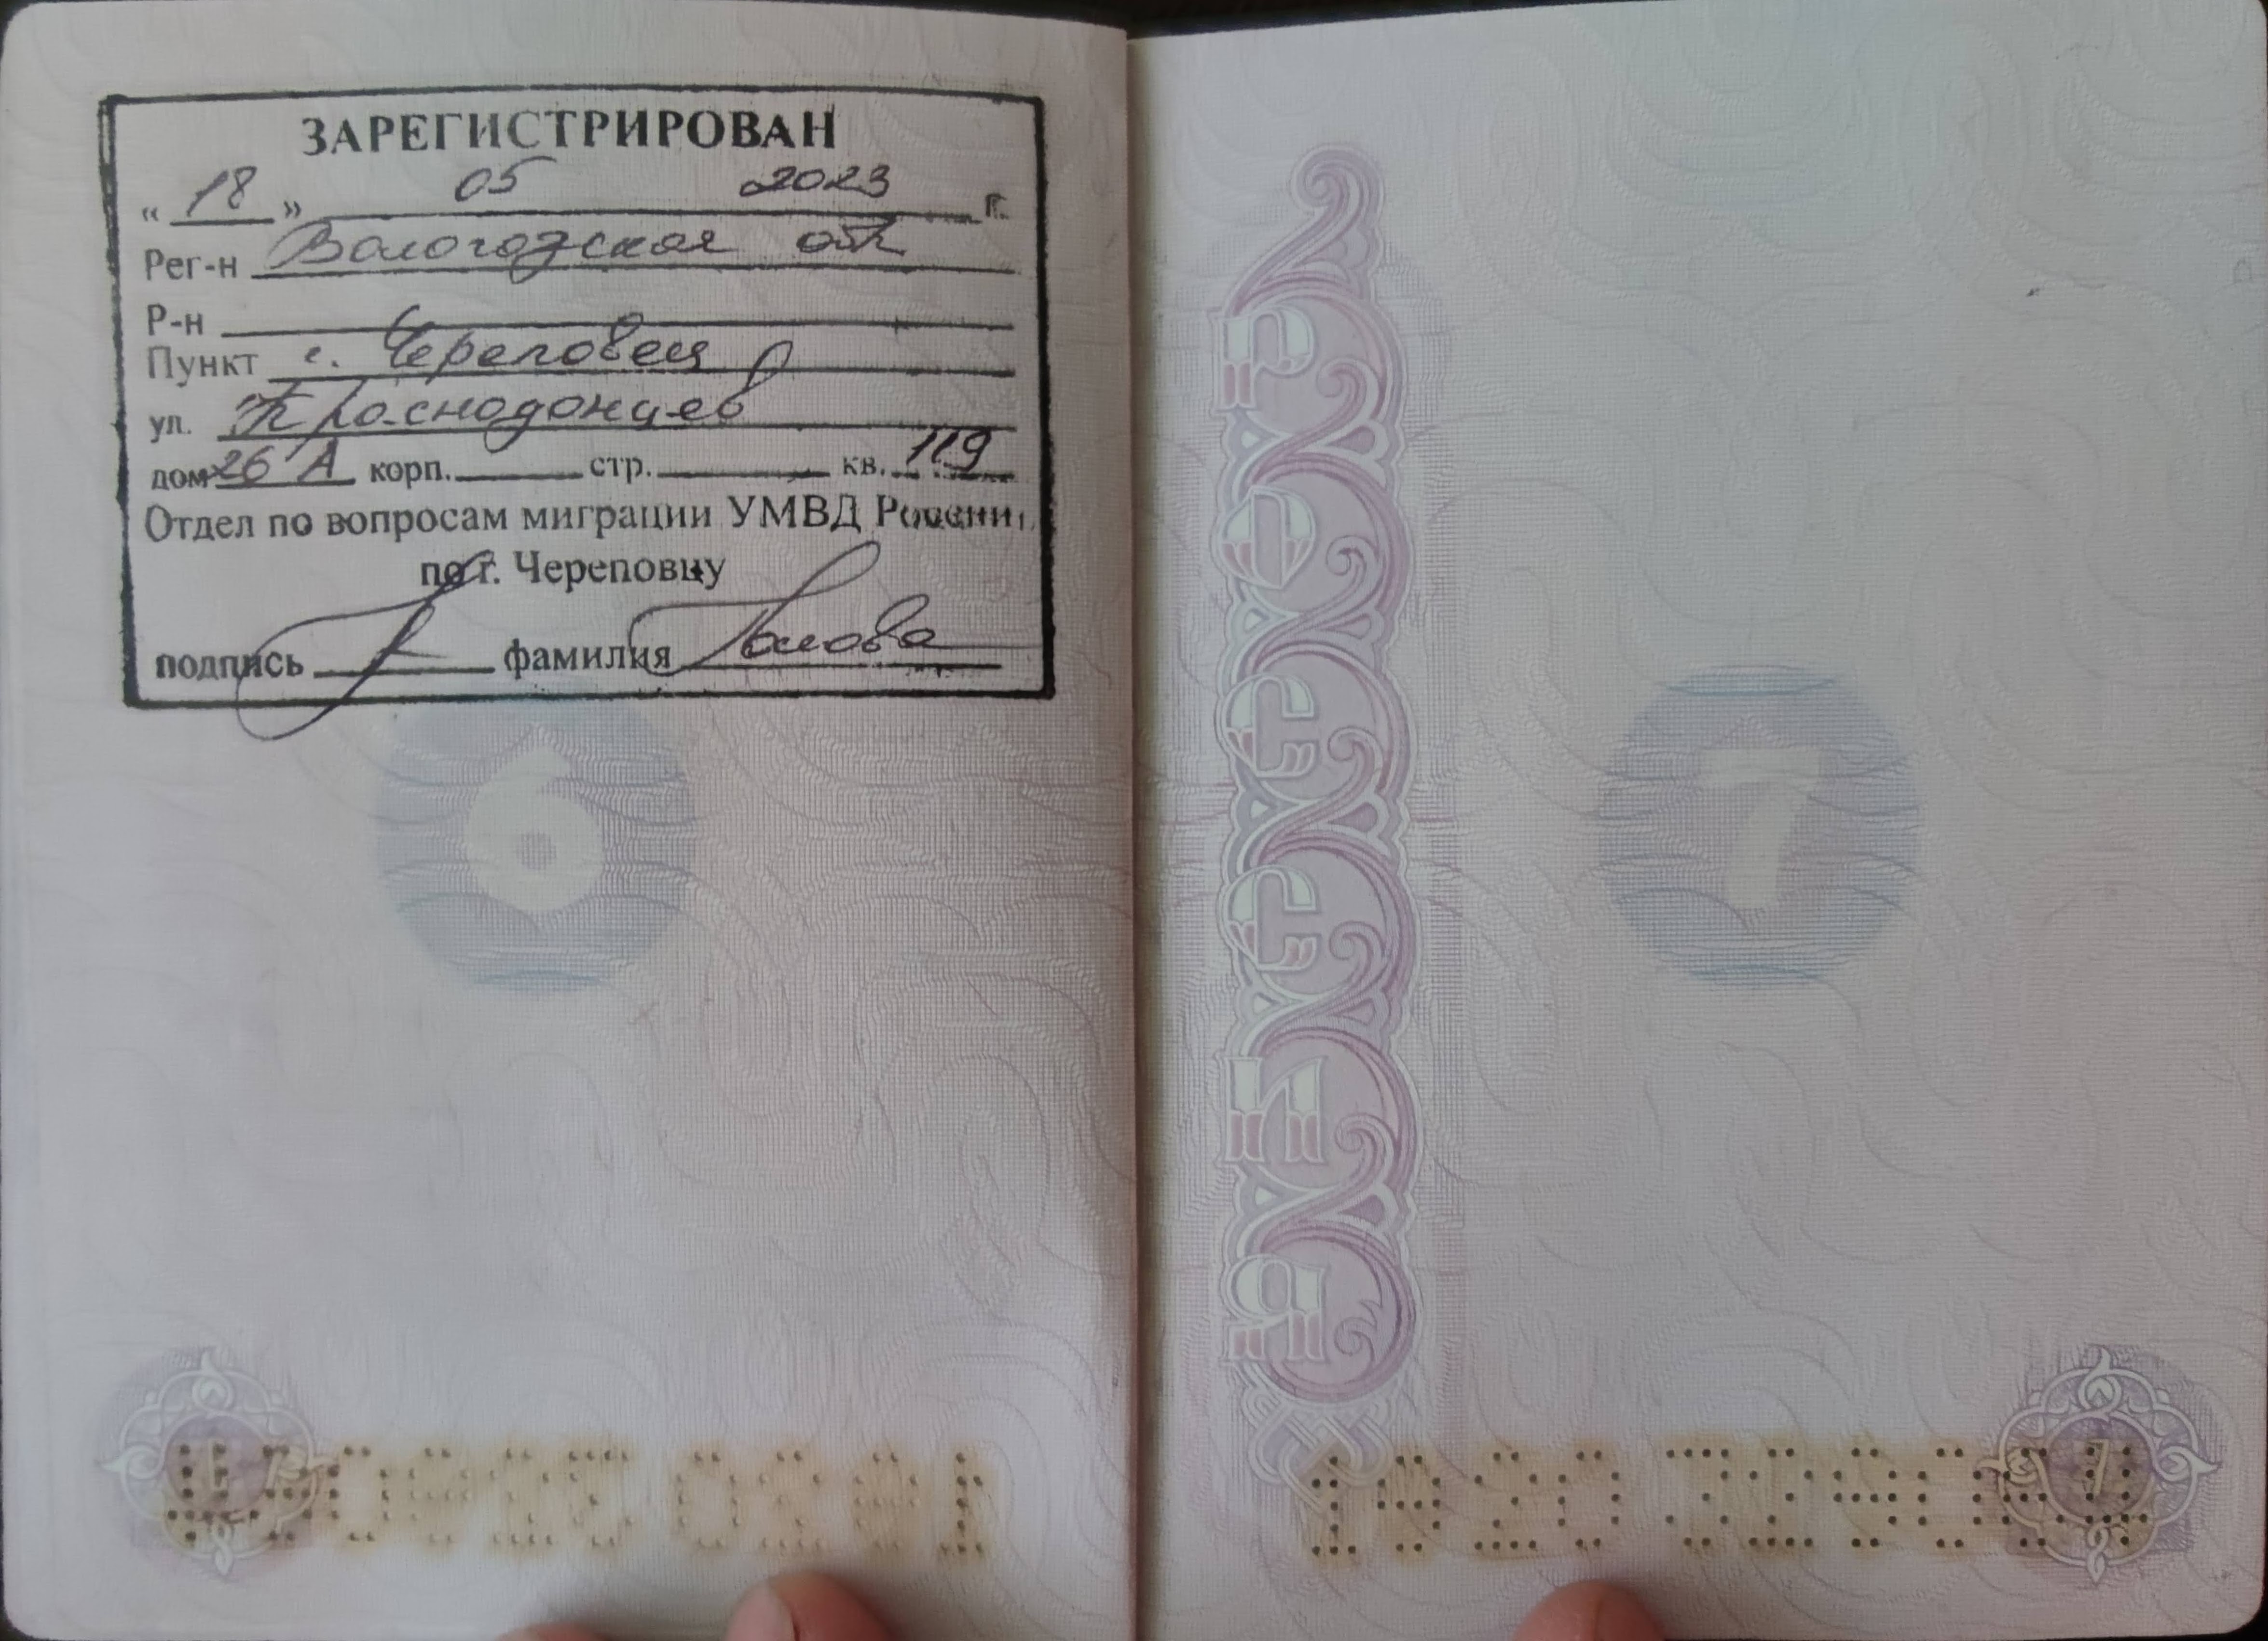 ЗАРЕГИСТРИРОВАН
« 18 » 05 2023 г.
Рег-н Вологодская обл
Р-н
Пункт г. Череповец
ул. Краснодонцев
дом 26 А корп. стр. кв. 119
Отдел по вопросам миграции УМВД России
по г. Череповцу
подпись фамилия
6
РОССИЯ
7